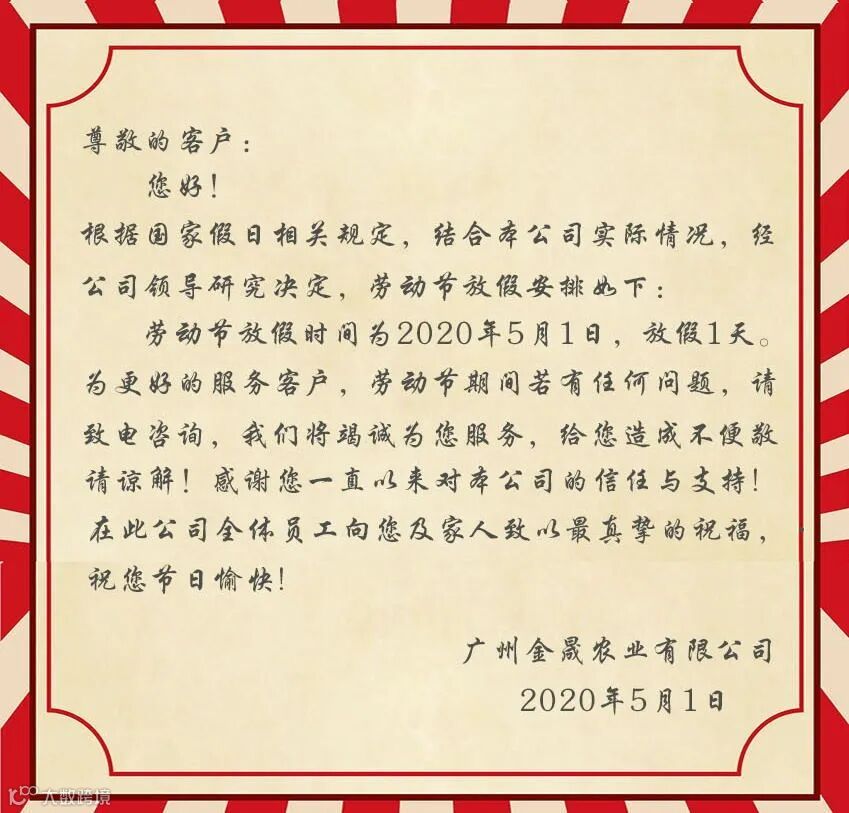 尊敬的客户：
您好！
根据国家假日相关规定，结合本公司实际情况，经
公司领导研究决定，劳动节放假安排如下：
劳动节放假时间为2020年5月1日，放假1天。
为更好的服务客户，劳动节期间若有任何问题，请
致电咨询，我们将竭诚为您服务，给您造成不便敬
请谅解！感谢您一直以来对本公司的信任与支持！
在此公司全体员工向您及家人致以最真挚的祝福，
祝您节日愉快！
广州金晟农业有限公司
2020年5月1日
大数跨境